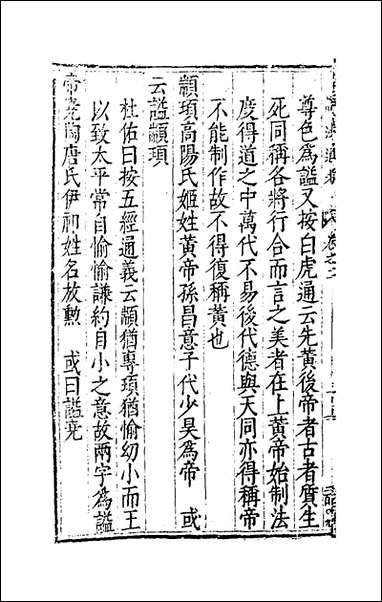 尊色為謚又按白虎通云先黃後帝者古者質生
死同稱各將行合而言之美者在上黃帝始制法
度得道之中萬代不易後代德與天同亦得稱帝
不能制作故不得復稱黃也
顓頊高陽氏姬姓黃帝孫昌意子代少昊為帝　或
云謚顓頊
杜佑曰按五經通義云顓猶專頊猶愉幼小而王
以致太平常自愉愉謙約自小之意故兩字為謚
帝堯陶唐氏伊祁姓名放勲　或曰謚堯